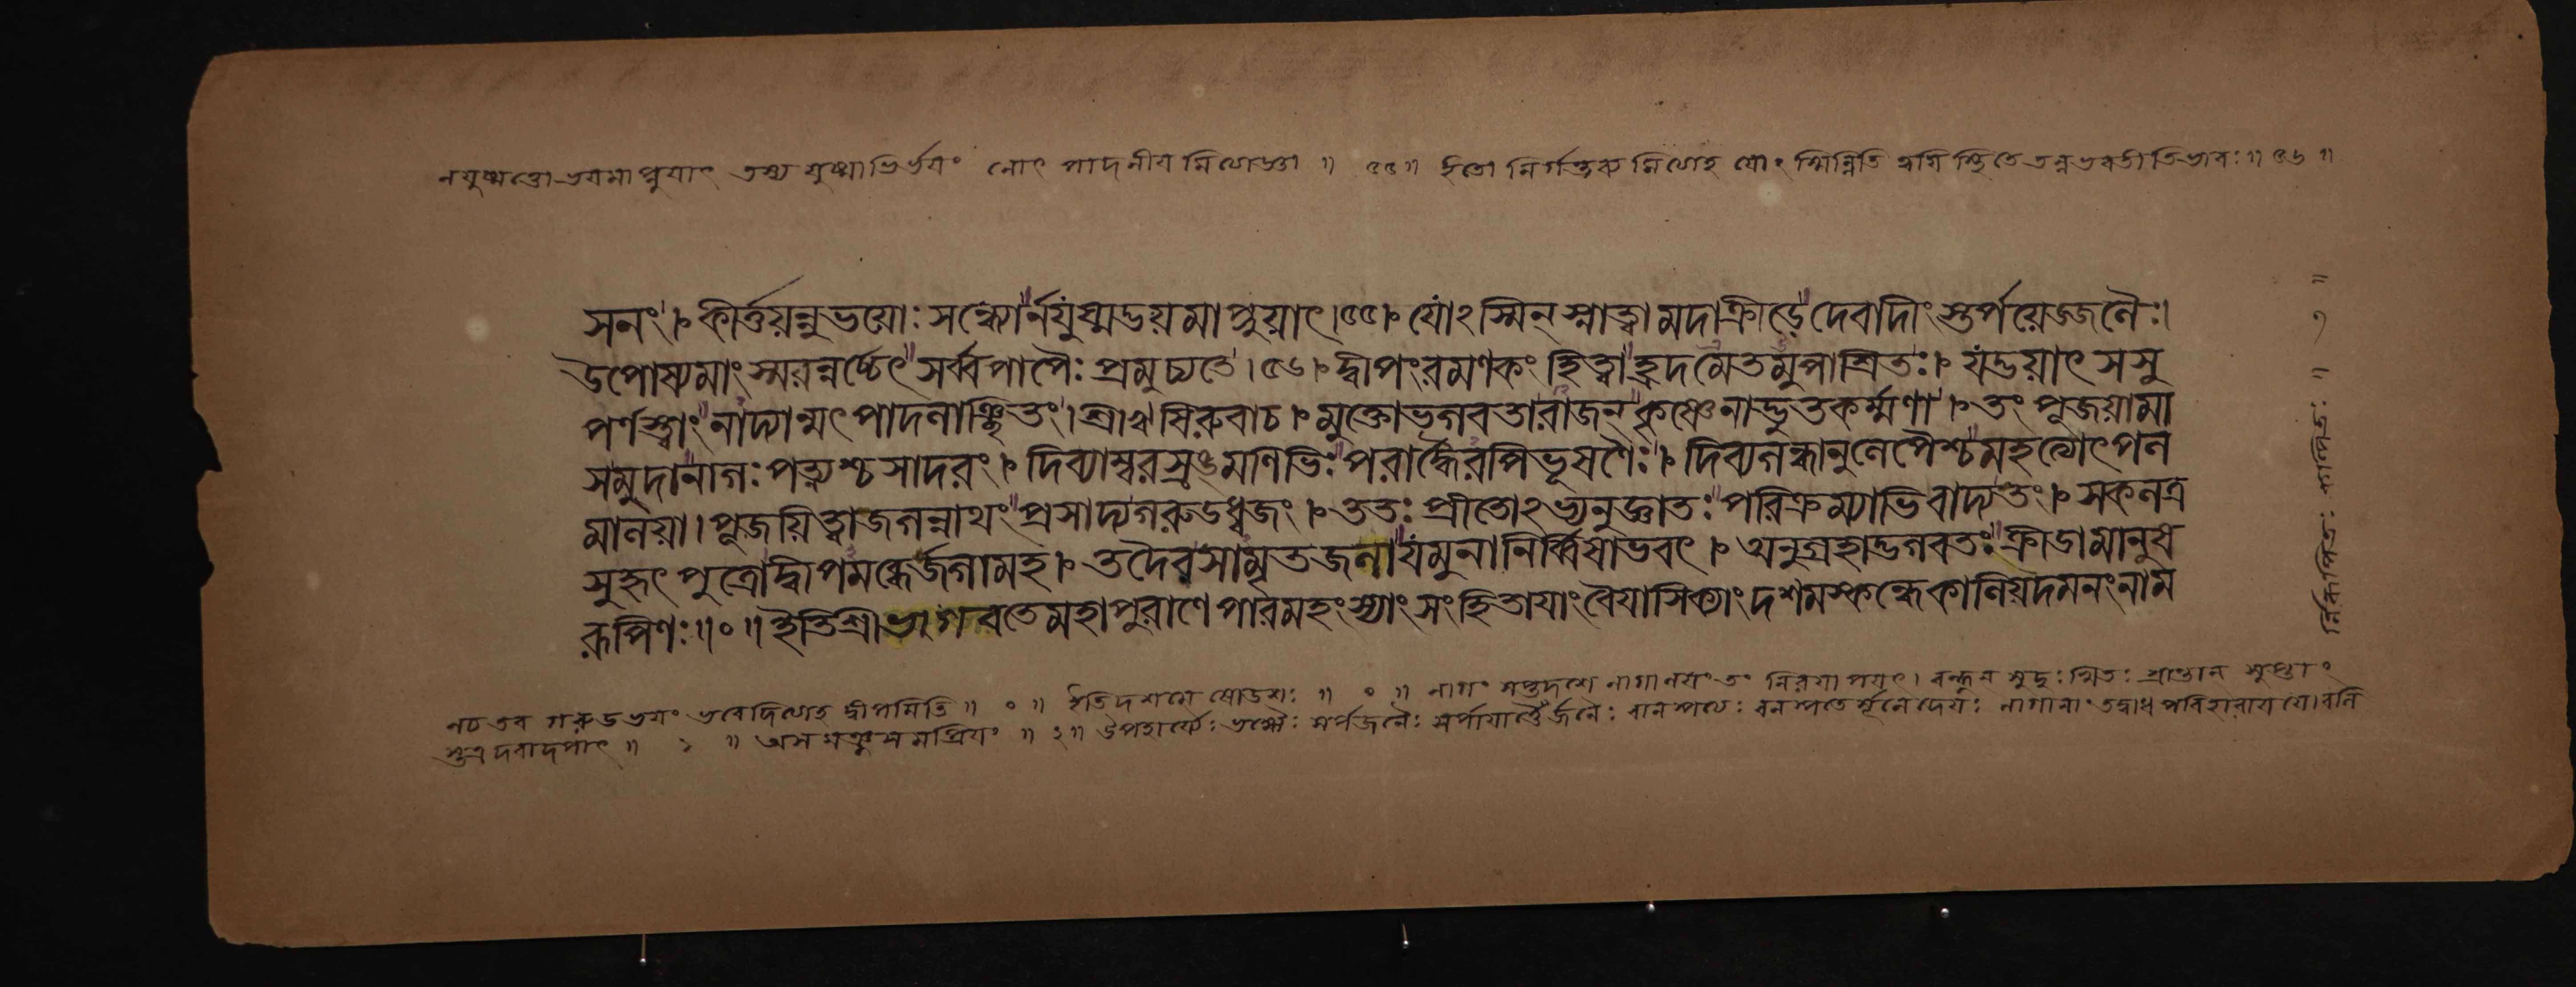 ন যুষ্মত্তো ভয়মাপ্নুয়াৎ তস্য যুষ্মাভির্ভয়ং নোৎপাদনীয় ॥ ৫৫॥ ইতো নির্গন্তব্যমিত্যেহ যোঽস্মিন্নিতি ত্বয়ি স্থিতে তন্ন ভবতীতি ভাবঃ॥ ৫৬ ॥
সনং।১ কীর্ত্তয়ন্নুভয়োঃ সন্ধ্যোর্নযুষ্মদ্ভয়মাপ্নুয়াৎ।৫৫।১ যোঽস্মিন্ স্নাত্বামদাক্রীড়েদেবাদীংস্তর্পয়েজ্জলৈঃ।
উপোষ্যমাংস্মরন্নর্চ্চেৎ সর্ব্বপাপৈঃ প্রমুচ্যতে।৫৬।১ দ্বীপংরমণকং হিত্বাহ্রদমেতমুপাশ্রিতঃ।১ যদ্ভয়াৎ সসু
পর্ণস্ত্বাং নাদ্যান্মৎপাদলাঞ্ছিতং।শ্রীঋষিরুবাচ।১ মুক্তোভগবতারাজন্ কৃষ্ণেনাদ্ভুতকর্ম্মণা।১ তং পূজয়ামা
সমুদানাগঃ পত্ন্যশ্চসাদরং।১ দিব্যাম্বরস্রঙ্মণিভিঃ পরার্দ্ধৈরপিভূষণৈঃ।১ দিব্যগন্ধানুলেপৈশ্চমহত্যোৎপল
মালয়া।পূজয়িত্বাজগন্নাথং প্রসাদ্যগরুডধ্বজং।১ ততঃ প্রীতোঽভ্যনুজ্ঞাতঃ পরিক্রম্যাভিবাদ্যতং।১ সকলত্র
সুহৃৎ পুত্রোদ্বীপমব্ধের্জগামহ।১ তদৈবসামৃতজলাযমুনানির্ব্বিষাভবৎ।১ অনুগ্রহাদ্ভগবতঃ ক্রীডামানুষ
রূপিণঃ॥०॥ ইতিশ্রীভাগবতেমহাপুরাণে পারমহংস্যাং সংহিতায়াংবৈয়াসিক্যাং দশমস্কন্ধেকালিয়দমনংনাম
নচ তব গরুডভয়ং ভবেদিত্যেহ দ্বীপমিতি ॥ ० ॥ ইতি দশমে ষোডশঃ ॥ ० ॥ নাগং সপ্তদশে নাগালয়ং তং নিরযাপয়ৎ। বন্ধূন্ সুদুঃখিতঃ শ্রান্তান্ সুপ্তাং
স্তত্র দবাদপাৎ ॥ ১ ॥ অসমঞ্জসমপ্রিয়ং ॥ ১॥ উপহার্য্যৈঃ ভক্ষ্যৈঃ সর্পজনৈঃ জনৈঃ বানস্পত্যঃ বনস্পতের্মূলে দেয়ঃ নাগানাং তদ্বাধ পরিহারায় যো বলি
র্নিরূপিতঃ কল্পিতঃ ॥ ১ ॥